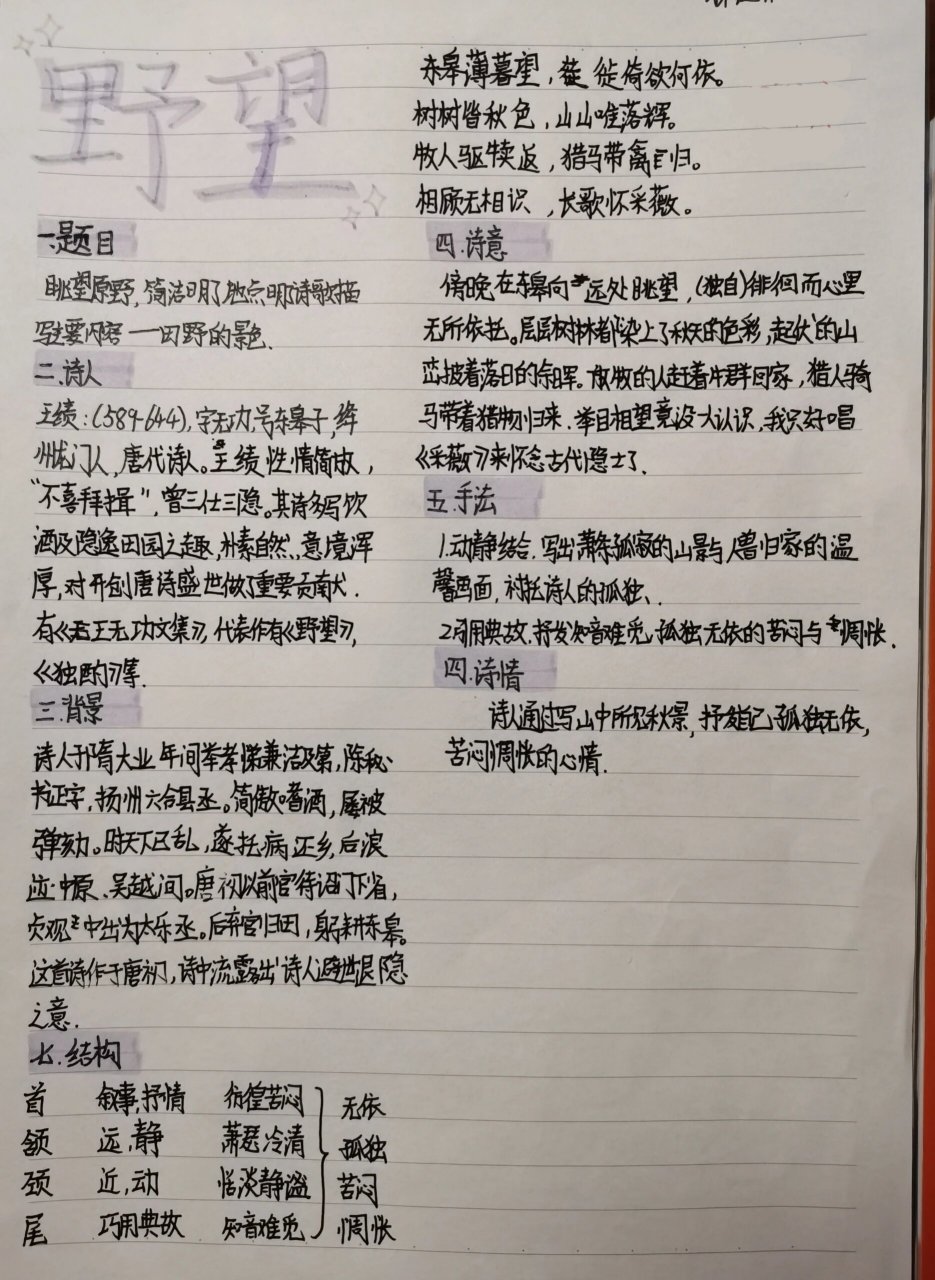 野望
一.题目
眺望原野,简洁明了地点明诗歌描
写主要内容——田野的景色.
二.诗人
王绩:(589-644),字无功,号东皋子,绛
州龙门人,唐代诗人。王绩性情简傲,
“不喜拜揖”,曾三仕三隐。其诗多写饮
酒及隐逸田园之趣,朴素自然,意境浑
厚,对开创唐诗盛世做了重要贡献.
有《王无功文集》,代表作有《野望》,
《独酌》等.
三.背景
诗人于隋大业年间举孝悌兼洁及第,除秘
书正字,扬州六合县丞。简傲嗜酒,屡被
弹劾。时天下已乱,遂托病还乡,后浪
迹中原、吴越间。唐初以前官待诏门下省,
贞观中出为太乐丞。后弃官归田,躬耕东皋。
这首诗作于唐初,诗中流露出诗人避世退隐
之意.
七.结构
首 叙事,抒情 彷徨苦闷 无依
颔 远,静 萧瑟冷清 孤独
颈 近,动 恬淡静谧 苦闷
尾 巧用典故 知音难觅 惆怅
东皋薄暮望,徙倚欲何依。
树树皆秋色,山山唯落辉。
牧人驱犊返,猎马带禽归。
相顾无相识,长歌怀采薇。
四.诗意
傍晚在东皋向远处眺望,(独自)徘徊而心里
无所依托。层层树林都染上了秋天的色彩,起伏的山
峦披着落日的余晖。放牧的人赶着牛群回家,猎人骑
马带着猎物归来.举目相望竟没人认识,我只好唱
《采薇》来怀念古代隐士了.
五.手法
1.动静结合.写出萧条孤寂的山景与人兽归家的温
馨画面,衬托诗人的孤独.
2.巧用典故.抒发知音难觅.孤独无依的苦闷与惆怅.
四.诗情
诗人通过写山中所见秋景,抒发自己孤独无依,
苦闷惆怅的心情.